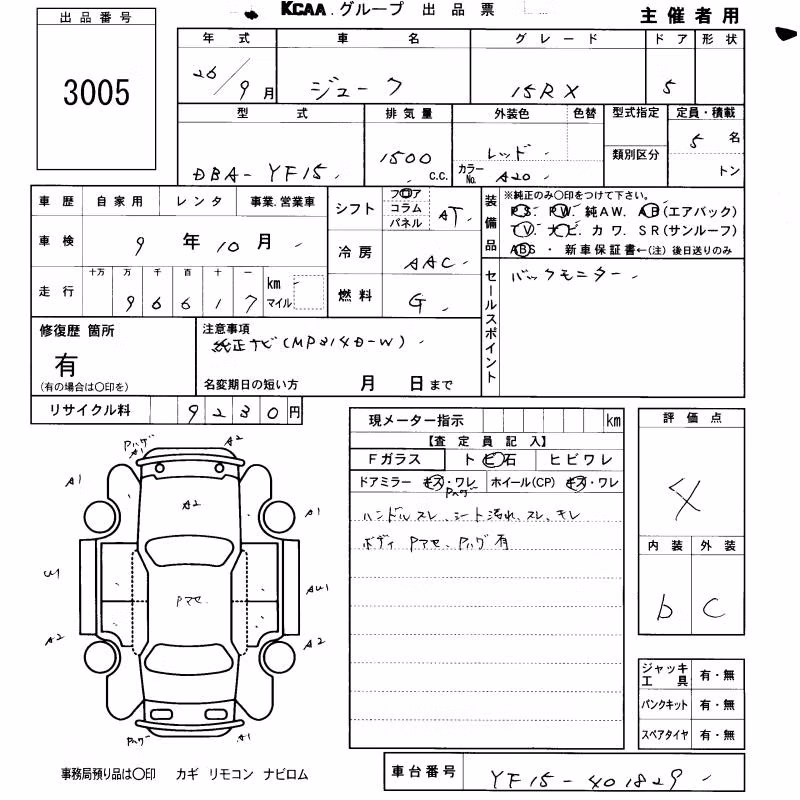 KCAA.グループ 出品票
主催者用
出品番号
3005
年式 車名 グレード ドア 形状
26/9月 ジューク 15RX 5
型式 排気量 外装色 色替 型式指定 定員・積載
DBA-YF15 1500 c.c. レッド 類別区分 5名
カラーNo. A20 トン
車歴 自家用 レンタ 事業.営業車
車検 9年10月
走行 十万 万 千 百 十 一
96617 km マイル
シフト フロア コラム パネル AT
冷房 AAC
燃料 G
装備品 ※純正のみ○印をつけて下さい。
PS. PW. 純AW. AB(エアバック)
TV. ナビ. カワ. SR(サンルーフ)
ABS ・ 新車保証書←(注)後日送りのみ
セールスポイント
バックモニター
修復歴 箇所
有
(有の場合は○印を)
注意事項
純正ナビ(MP314D-W)
名変期日の短い方 月 日まで
リサイクル料 9230円
現メーター指示 km
【査定員記入】
Fガラス ト ビ 石 ヒビワレ
ドアミラー キズ・ワレ ホイール(CP) キズ・ワレ
Pハゲ
ハンドルスレ、シート汚れ、スレ、キレ
ボディ Pヤセ、Pハゲ有
評価点
4
内装 外装
b C
Pハゲ A2
A1
A2
A1
U1
Pヤセ
AU1
A2
A2
Pハゲ A1
ジャッキ工具 有・無
パンクキット 有・無
スペアタイヤ 有・無
事務局預り品は○印 カギ リモコン ナビロム
車台番号 YF15-401829